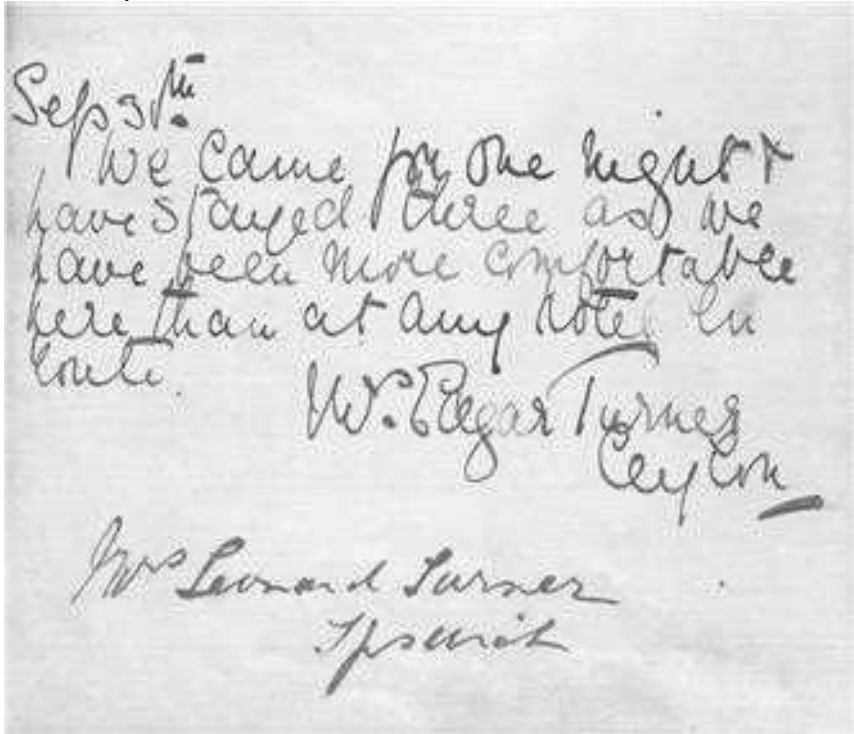 Sep 3th
We came for one night &
have stayed three as we
have been more comfortable
here than at any hotel en
route.
Mrs. Edgar Turner
Ceylon
Mrs Leonard Turner
Ipswich